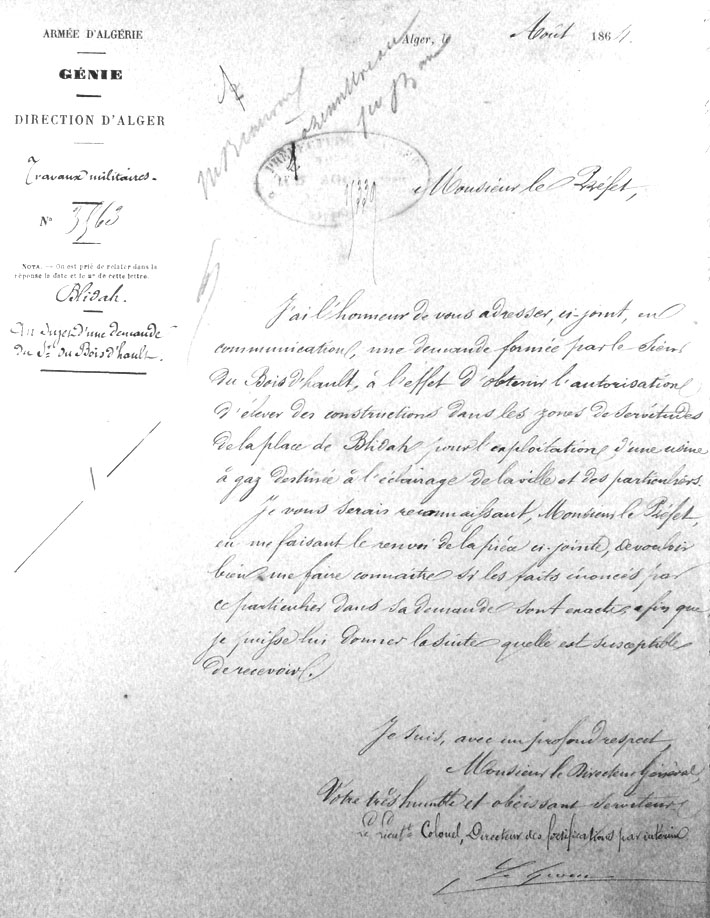 ARMÉE D'ALGÉRIE
GÉNIE
DIRECTION D'ALGER
Travaux militaires.
N° 3563
NOTA. — On est prié de relater dans la
réponse la date et le n° de cette lettre.
Blidah.
Au sujet d'une demande
du Sr. du Bois d'hault.
Alger, le Août 1864.
Monsieur le Préfet,
J'ai l'honneur de vous adresser, ci-joint, en
communication, une demande formée par le Sieur
du Bois d'hault, à l'effet d'obtenir l'autorisation
d'élever des constructions dans les zones de servitudes
de la place de Blidah pour l'exploitation d'une usine
à gaz destinée à l'éclairage de la ville et des particuliers.
Je vous serais reconnaissant, Monsieur le Préfet,
en me faisant le renvoi de la pièce ci-jointe, de vouloir
bien me faire connaître si les faits énoncés par
ce particulier dans sa demande sont exacts, afin que
je puisse lui donner la suite quelle est susceptible
de recevoir.
Je suis, avec un profond respect,
Monsieur le Directeur Général,
Votre très humble et obéissant serviteur,
Le Lieut. Colonel, Directeur des fortifications par intérim